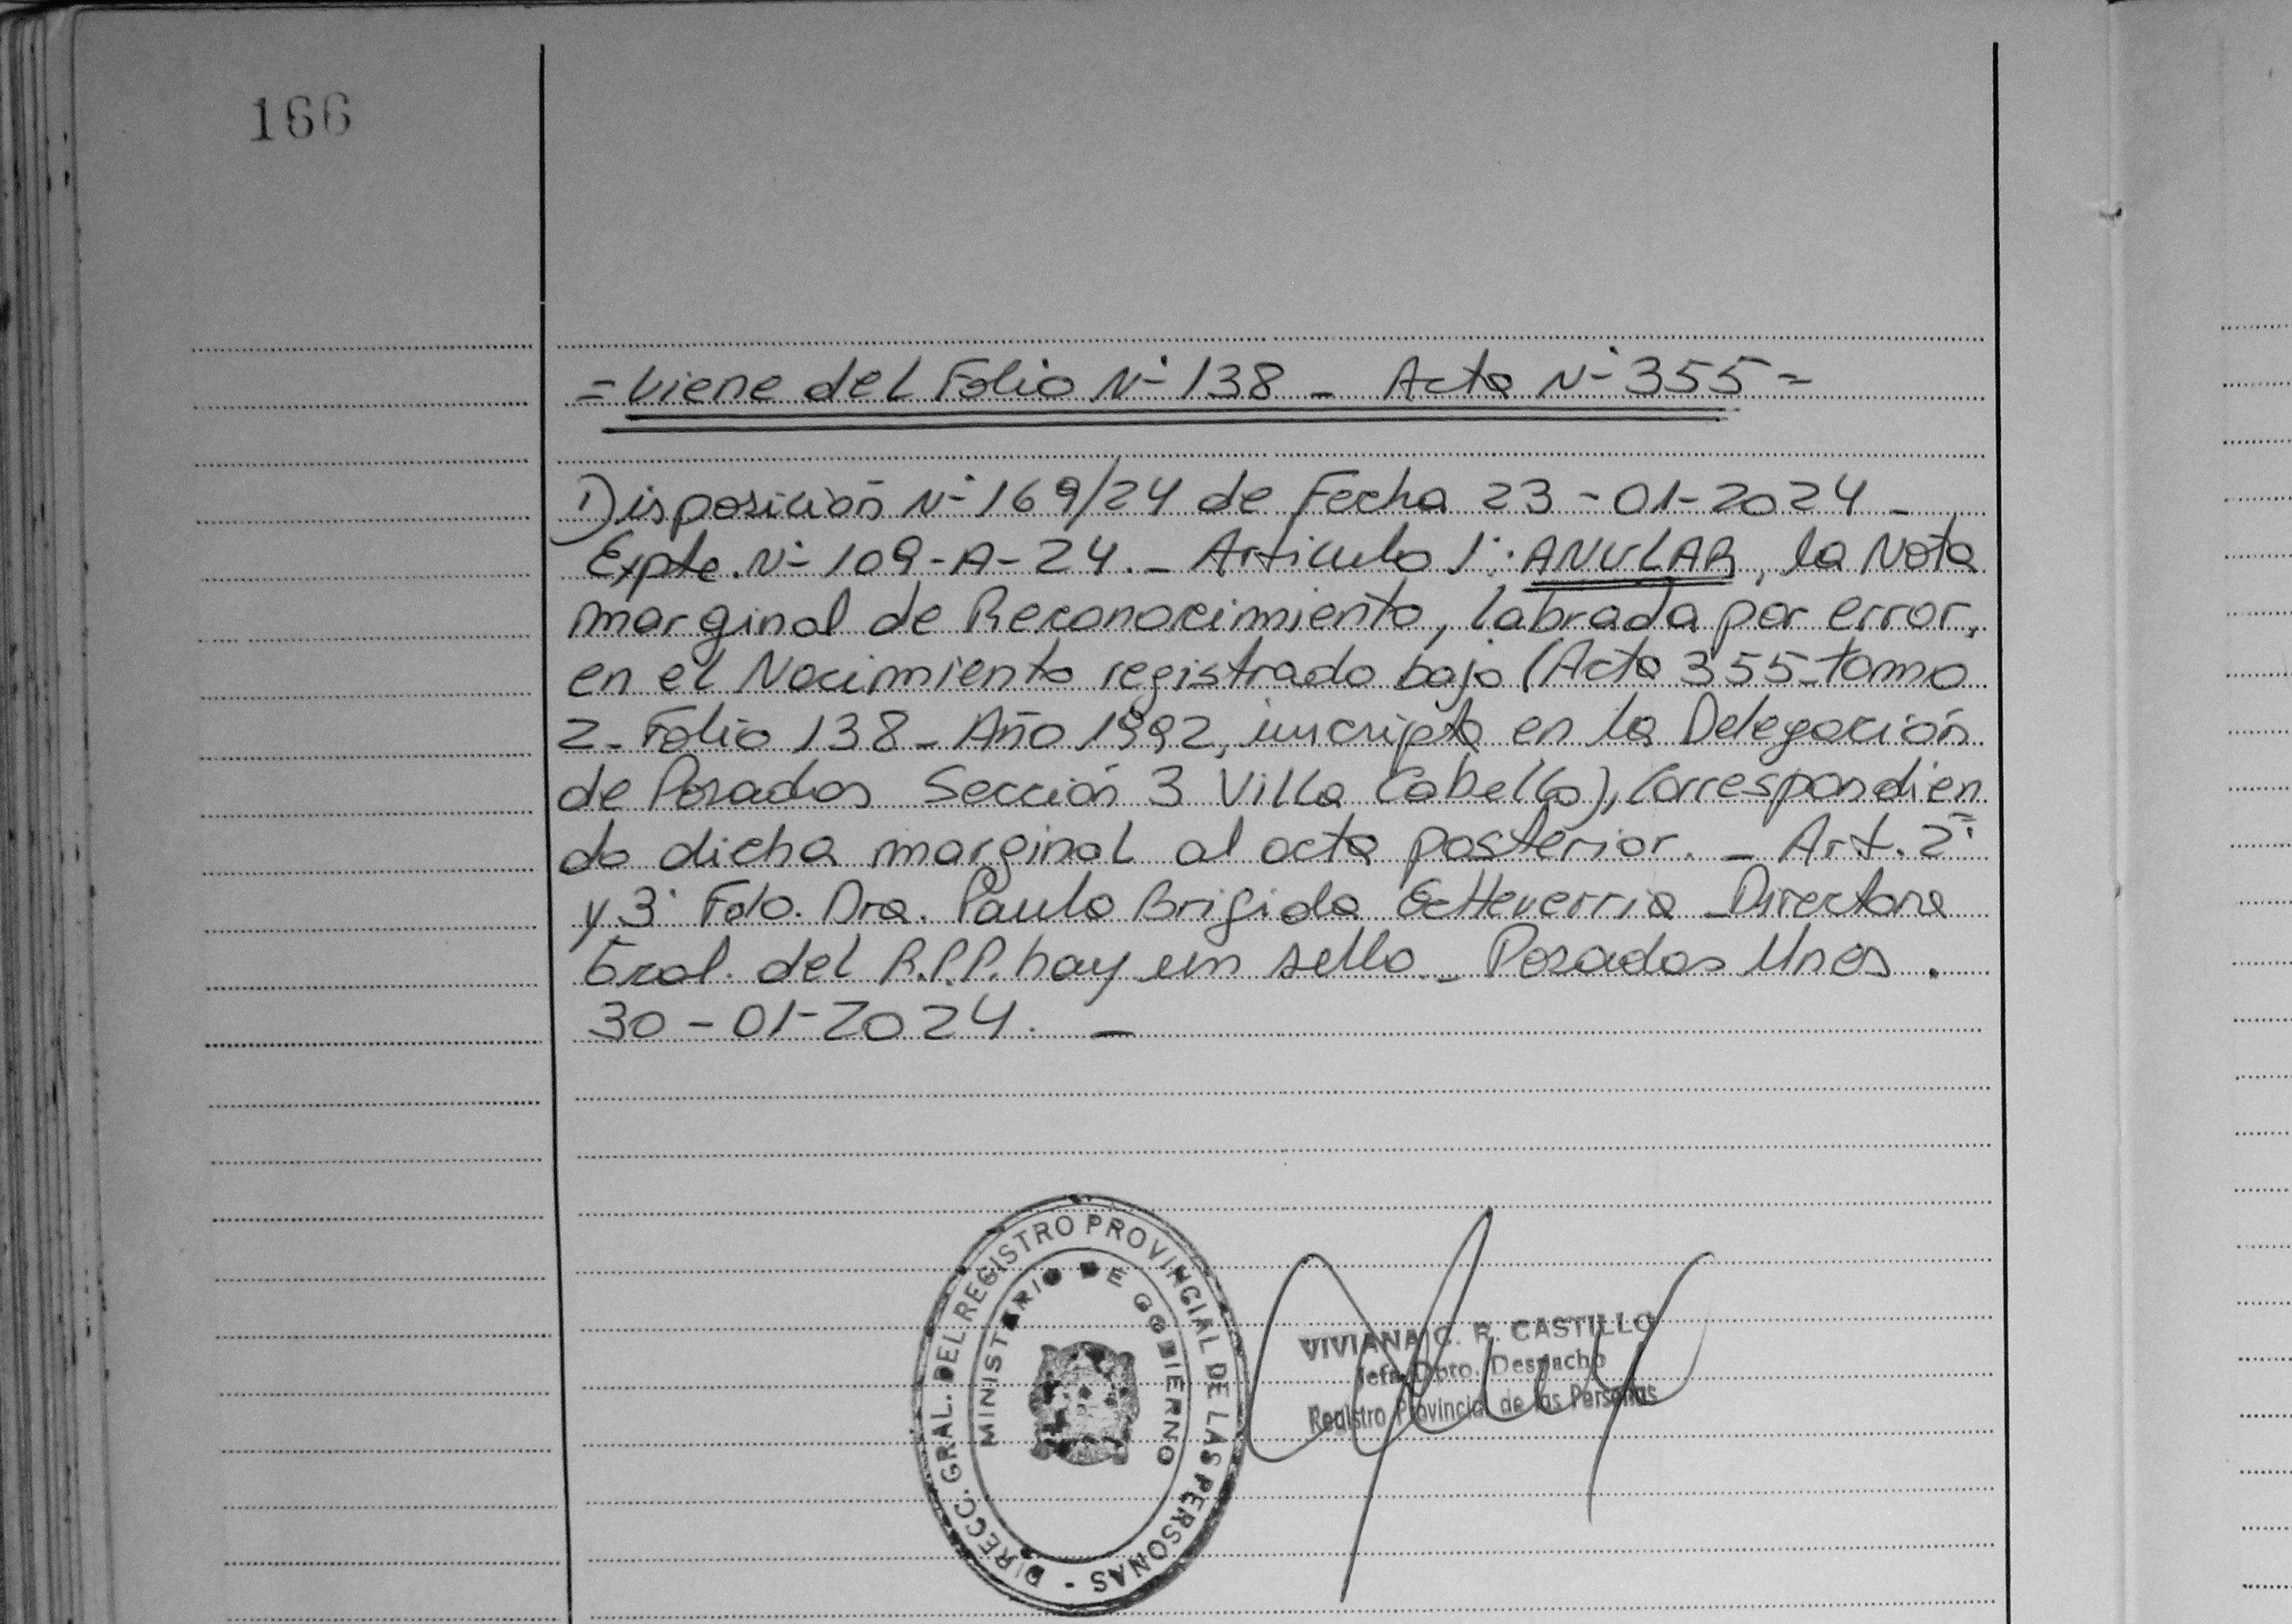 166
=Viene del Folio Nº 138 - Acta Nº 355=
Disposición Nº 169/24 de Fecha 23-01-2024 -
Expte. Nº 109-A-24.- Articulo 1º: ANULAR, la Nota
marginal de Reconocimiento, labrada por error,
en el Nacimiento registrado bajo (Acta 355-tomo
2- Folio 138- Año 1992, inscripto en la Delegación
de Posadas Sección 3 Villa Cabello), Correspondien
do dicha marginal al acta posterior. - Art. 2º
y 3º Fdo. Dra. Paula Brigida Etcheverria -Directora
Gral. del R.P.P. hay un sello.- Posadas Mnes.
30-01-2024. -
DIRECC. GRAL. DEL REGISTRO PROVINCIAL DE LAS PERSONAS -
MINISTERIO DE GOBIERNO
VIVIANA C. R. CASTILLO
Jefa Dpto. Despacho
Registro Provincial de las Personas